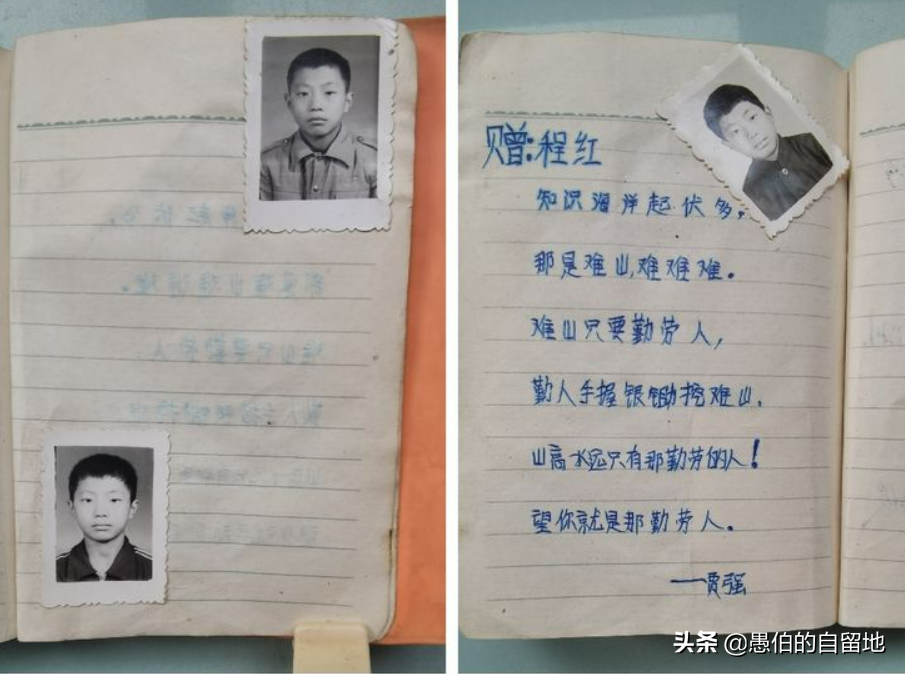 赠:程红
知识海洋起伏多,
那是难山,难难难.
难山只要勤劳人,
勤人手握银锄挖难山.
山高水远只有那勤劳的人!
望你就是那勤劳人.
——贾强
头条 @愚伯的自留地